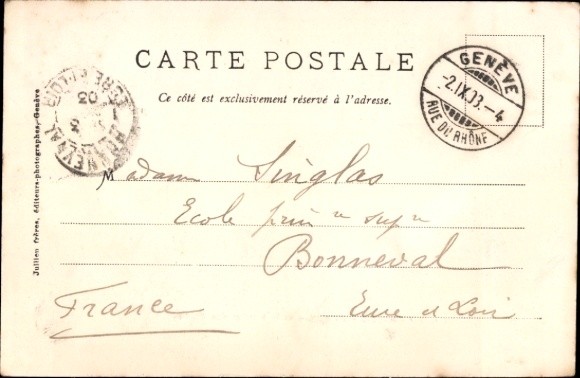 CARTE POSTALE
Ce côté est exclusivement réservé à l'adresse.
GENÈVE
-2.IX.03.-4
RUE DU RHÔNE
BONNEVAL
EURE-ET-LOIR
03
Madame Singlas
Ecole primre supre
Bonneval
France
Eure et Loir
Jullien frères, éditeurs-photographes, Genève